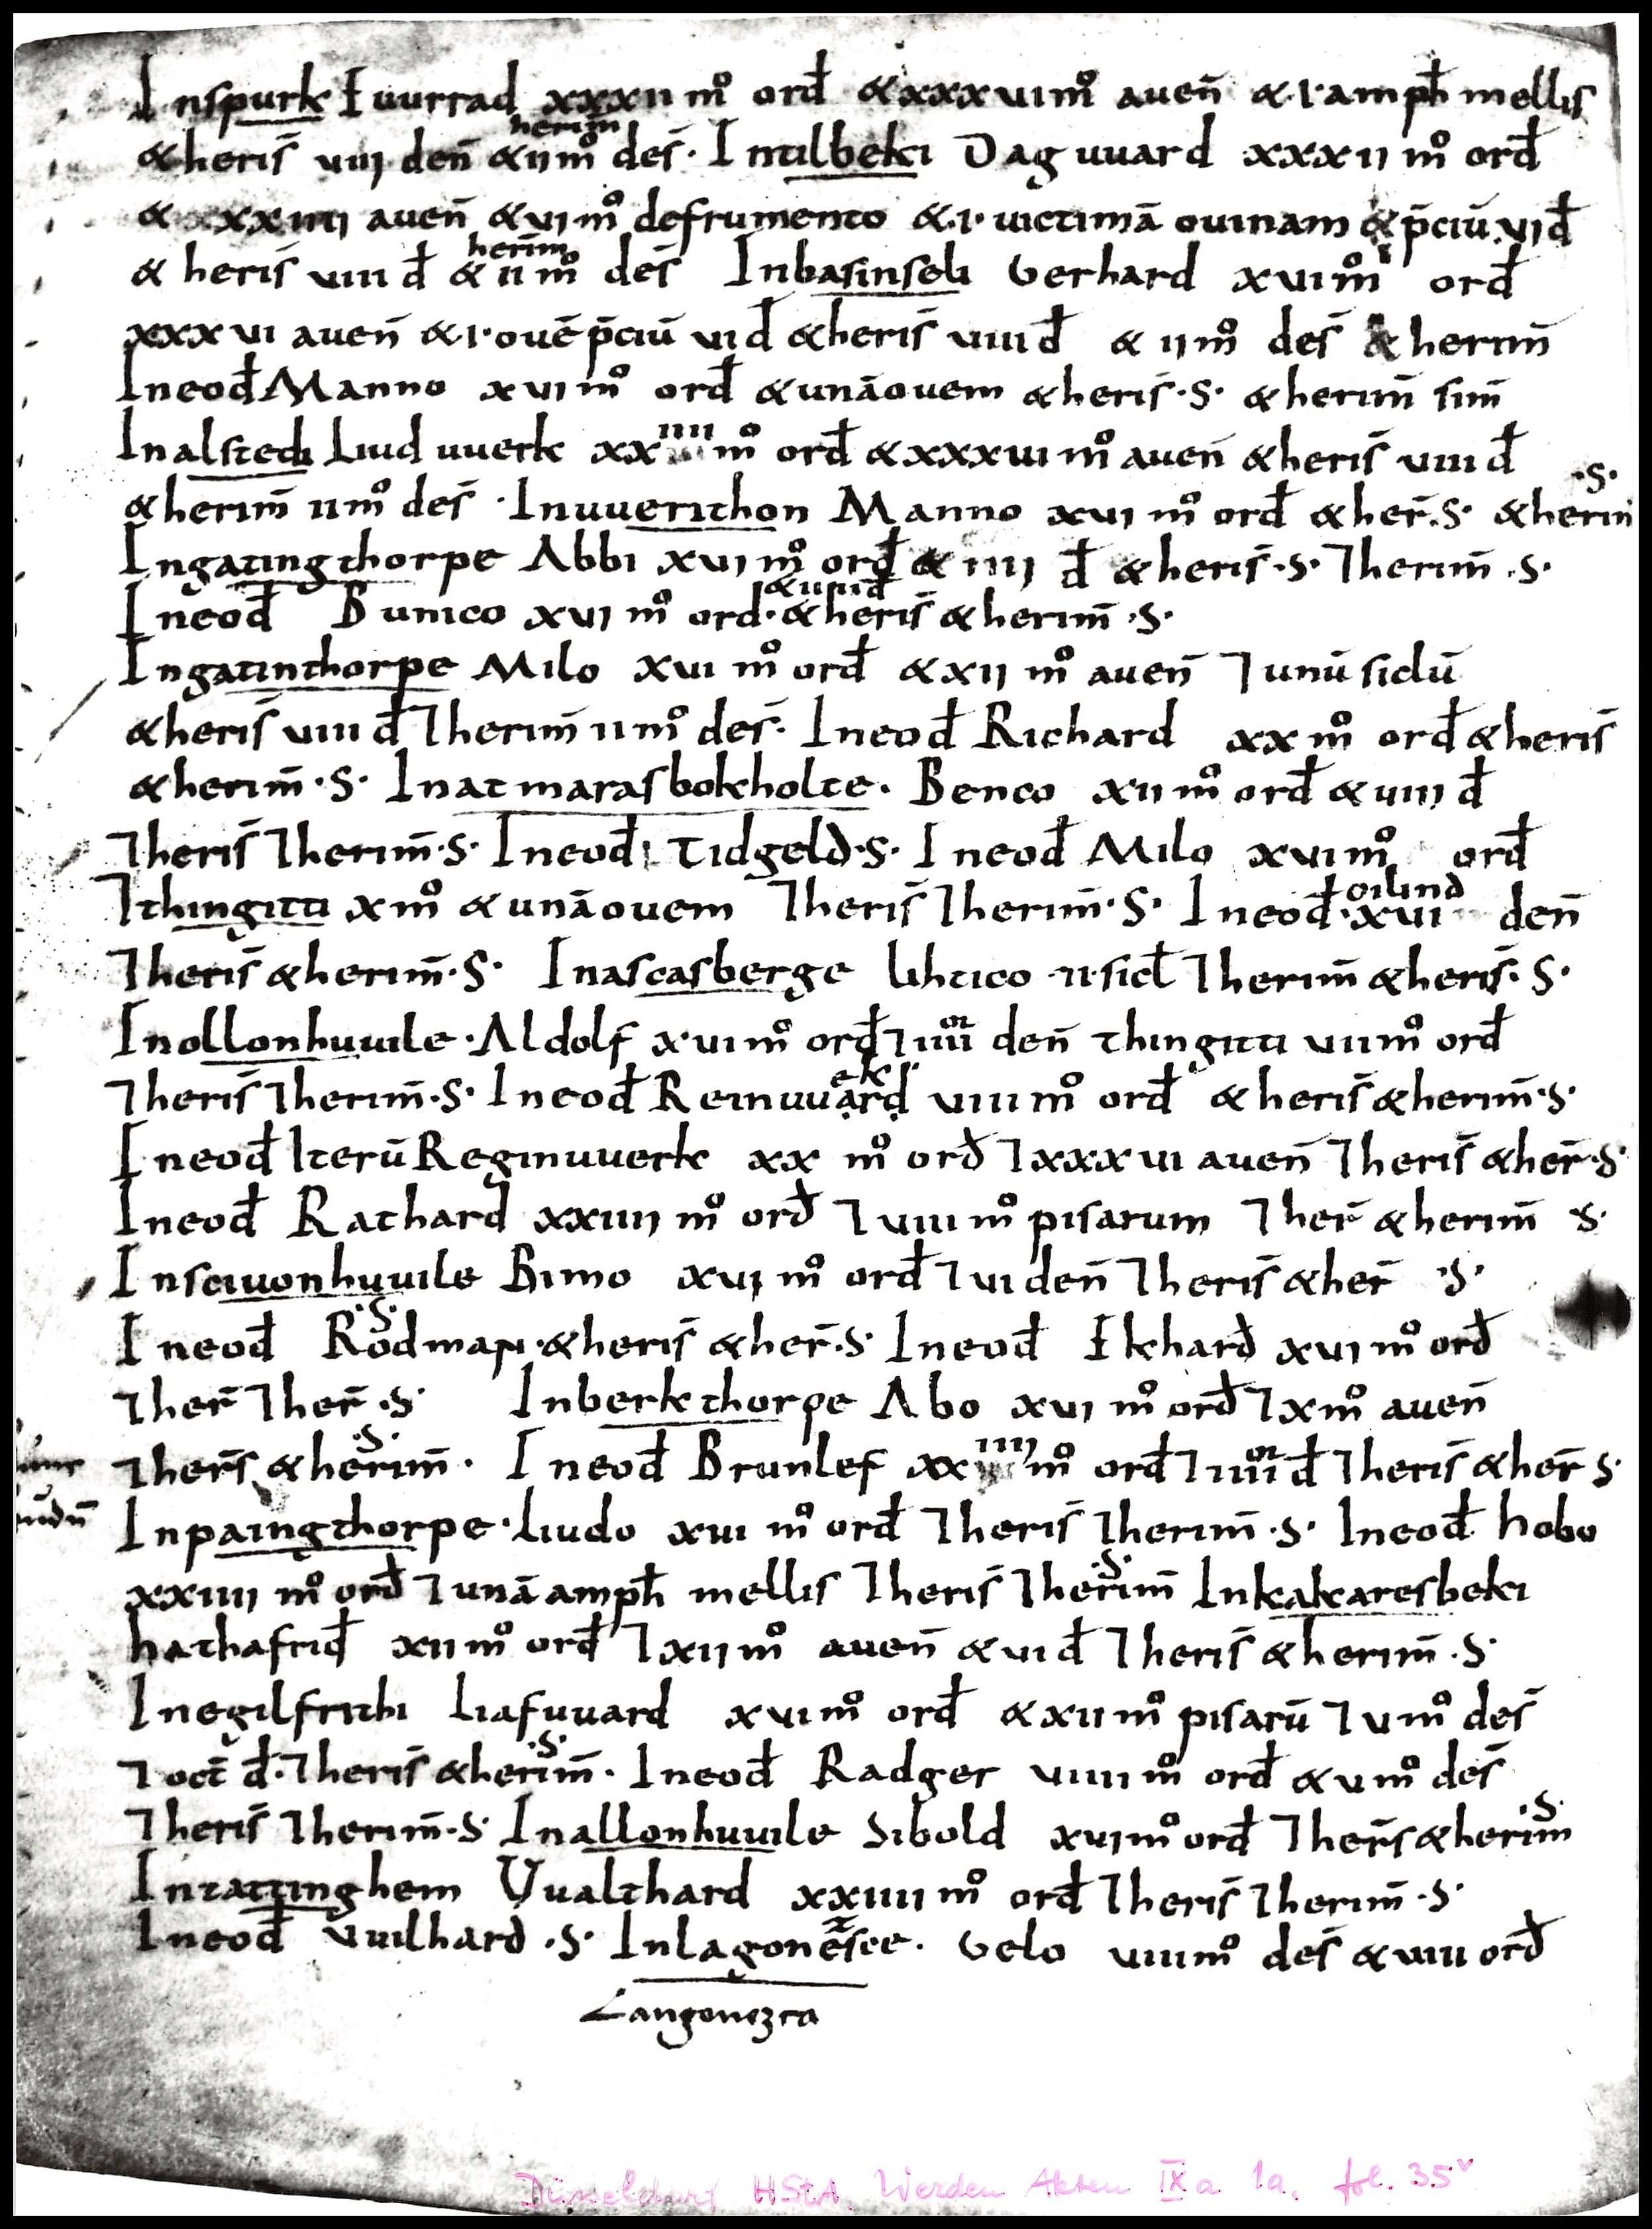 Inspurk Euurrad xxxii mº ord̄ & xxxvi mº aueñ & ·i· amph̄ mellis
herim̄
& heris̄ viii deñ & ii mº des̄· Intilbeki Dag uuard xxxii mº ord̄
& xxiiii aueñ & vi mº defrumento & ·i· uictimā ouinam & p̄ciū vi d̄
herim̄
& heris̄ viii d̄ & ii mº des̄ Inbasinseli Gerhard xvi mº ord̄
xxxvi aueñ & ·i· ouē p̄ciū vi d̄ & heris̄ viii d̄ & ii mº des̄ & herim̄
Ineod̄ Manno xvi mº ord̄ & unā ouem & heris̄ ·S· & herim̄ sim̄
Inalstedi Liud uuerk xxiiii mº ord̄ & xxxvi mº aueñ & heris̄ viii d̄
& herim̄ ii mº des̄ · Inuuerithon Manno xvi mº ord̄ & her̄ ·S· & herim̄ ·S·
Ingatingthorpe Abbi xvi mº ord̄ & iiii d̄ & heris̄ ·S· ⁊ herim̄ ·S·
Ineod̄ Bunico xvi mº ord· & heris̄ & herim̄ ·S·
Ingatinthorpe Milo xvi mº ord̄ & xii mº aueñ ⁊ unū siclū
& heris̄ viii d̄ ⁊ herim̄ ii mº des̄· Ineod̄ Richard xx mº ord̄ & heris̄
& herim̄ ·S· Inatmarasbokholte· Benco xii mº ord̄ & viii d̄
⁊ heris̄ ⁊ herim̄ ·S· Ineod̄ Tidgeld ·S· Ineod̄ Milo xvi mº ord̄
oilind
⁊ thingiti x mº & unā ouem ⁊ heris̄ ⁊ herim̄ ·S· Ineod̄ · xvi deñ
⁊ heris̄ & herim̄ ·S· Inascasberge Lihtico ·ii· sicl̄ ⁊ herim̄ & heris̄ ·S·
Inollonhuuile · Aldolf xvi mº ord̄ ⁊ iiiior deñ thingiti vii mº ord̄
ek
⁊ heris̄ ⁊ herim̄ ·S· Ineod̄ Reinuuard viii mº ord̄ & heris̄ & herim̄ ·S·
Ineod̄ Iterū Reginuuerk xx mº ord̄ ⁊ xxxvi aueñ ⁊ heris̄ & her̄ ·S·
Ineod̄ Rathard xxiiii mº ord̄ ⁊ viii mº pisarum ⁊ her̄ & herim̄ ·S·
Insciuonhuuile Bimo xvi mº ord̄ ⁊ vi deñ ⁊ heris̄ & her̄ ·S·
·S·
Ineod̄ Rodman · & heris̄ & her̄ ·S· Ineod̄ Ekhard xvi mº ord̄
⁊ her̄ ⁊ her̄ ·S· Inberkthorpe Abo xvi mº ord̄ ⁊ x mº aueñ
·S·
⁊ her̄s & herim̄ · Ineod̄ Brunlef xxiiii mº ord̄ ⁊ iiiior d̄ ⁊ heris̄ & her̄ S·
Inpaingthorpe · Liudo xvi mº ord̄ ⁊ heris̄ ⁊ herim̄ ·S· Ineod̄ hobo
·S·
xxiiii mº ord̄ ⁊ unā amph̄ mellis ⁊ heris̄ ⁊ herim̄ Inkakaresbeki
hathafrid̄ xii mº ord̄ ⁊ xii mº aueñ & vi d̄ ⁊ heris̄ & herim̄ ·S·
Inegilfrithi Liafuuard xvi mº ord̄ & xii mº pisarū ⁊ v mº des̄
·S·
⁊ oct̄ d̄ · ⁊ heris̄ & herim̄ · Ineod̄ Radger viiii mº ord̄ & v mº des̄
⁊ heris̄ ⁊ herim̄ ·S· Inallonhuuile Sibold xvi mº ord̄ ⁊ her̄s & herim̄ ·S·
Intattinghem Uualthard xxiiii mº ord̄ ⁊ heris̄ ⁊ herim̄ ·S·
Ineod̄ Vuilhard ·S· Inlagonesee · Gelo viii mº des̄ & viii ord̄
Langonezra
Düsseldorf HStA, Werden Akten IX a 1a, fol. 35v